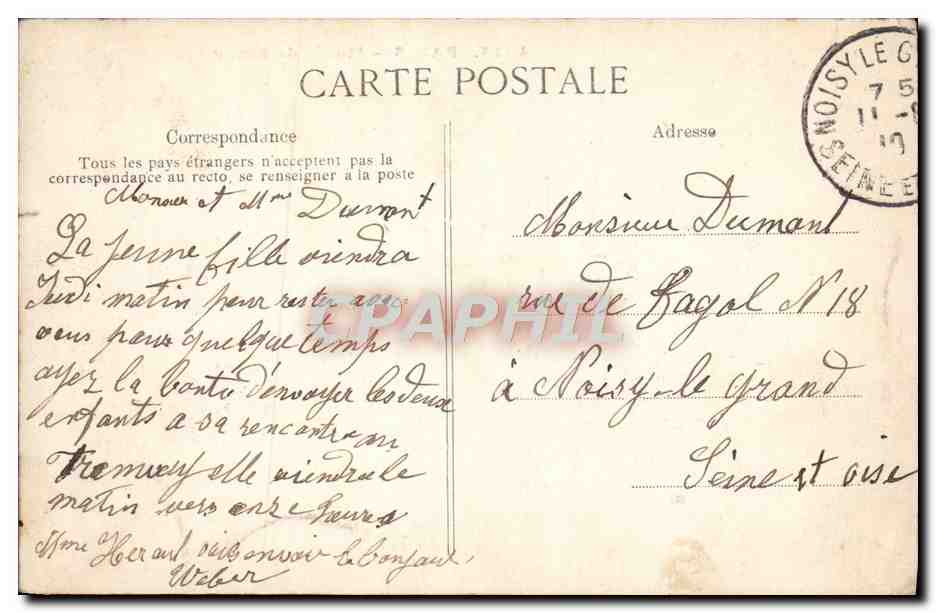 CARTE POSTALE
Correspondance
Tous les pays étrangers n'acceptent pas la
correspondance au recto, se renseigner a la poste
Adresse
NOISY LE G
7 5
11
19
SEINE E
Monsieur et Mme Dumont
La jeune fille viendra
Jeudi matin pour rester avec
vous pour quelque temps
ayez la bonté d'envoyer les deux
enfants a sa rencontre au
Tramway elle viendra le
matin vers onze heures
Mme Heraul vous envoir le bonjour
Weber
Monsieur Dumont
rue de N 18
à Noisy-le grand
Seine et oise
CPAPHIL